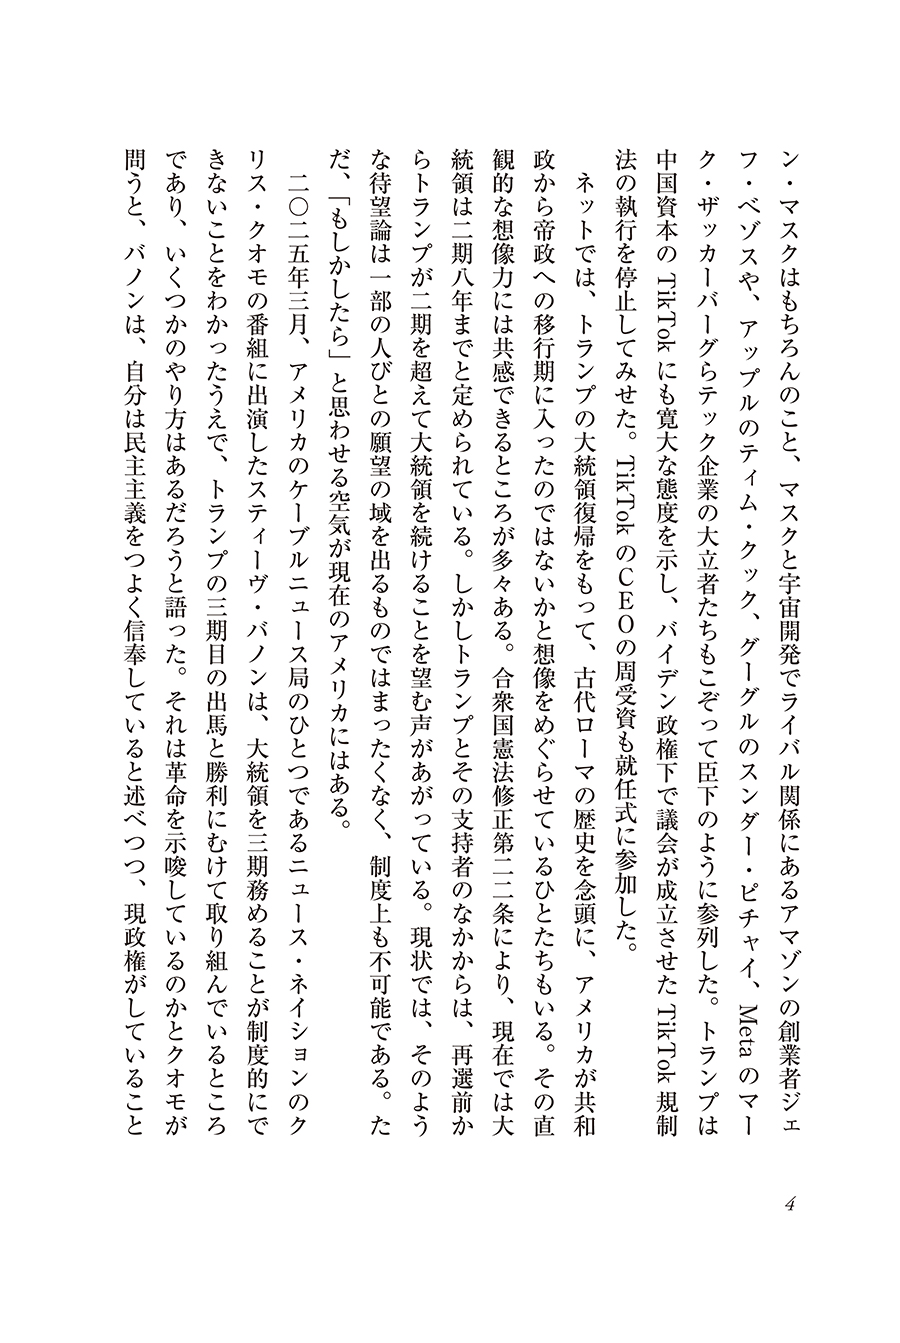 ン・マスクはもちろんのこと、マスクと宇宙開発でライバル関係にあるアマゾンの創業者ジェ
フ・ベゾスや、アップルのティム・クック、グーグルのスンダー・ピチャイ、Metaのマー
ク・ザッカーバーグらテック企業の大立者たちもこぞって臣下のように参列した。トランプは
中国資本の TikTok にも寛大な態度を示し、バイデン政権下で議会が成立させた TikTok 規制
法の執行を停止してみせた。TikTok のCEOの周受資も就任式に参加した。
　ネットでは、トランプの大統領復帰をもって、古代ローマの歴史を念頭に、アメリカが共和
政から帝政への移行期に入ったのではないかと想像をめぐらせているひとたちもいる。その直
観的な想像力には共感できるところが多々ある。合衆国憲法修正第二二条により、現在では大
統領は二期八年までと定められている。しかしトランプとその支持者のなかからは、再選前か
らトランプが二期を超えて大統領を続けることを望む声があがっている。現状では、そのよう
な待望論は一部の人びとの願望の域を出るものではまったくなく、制度上も不可能である。た
だ、「もしかしたら」と思わせる空気が現在のアメリカにはある。
　二〇二五年三月、アメリカのケーブルニュース局のひとつであるニュース・ネイションのク
リス・クオモの番組に出演したスティーヴ・バノンは、大統領を三期務めることが制度的にで
きないことをわかったうえで、トランプの三期目の出馬と勝利にむけて取り組んでいるところ
であり、いくつかのやり方はあるだろうと語った。それは革命を示唆しているのかとクオモが
問うと、バノンは、自分は民主主義をつよく信奉していると述べつつ、現政権がしていること
4